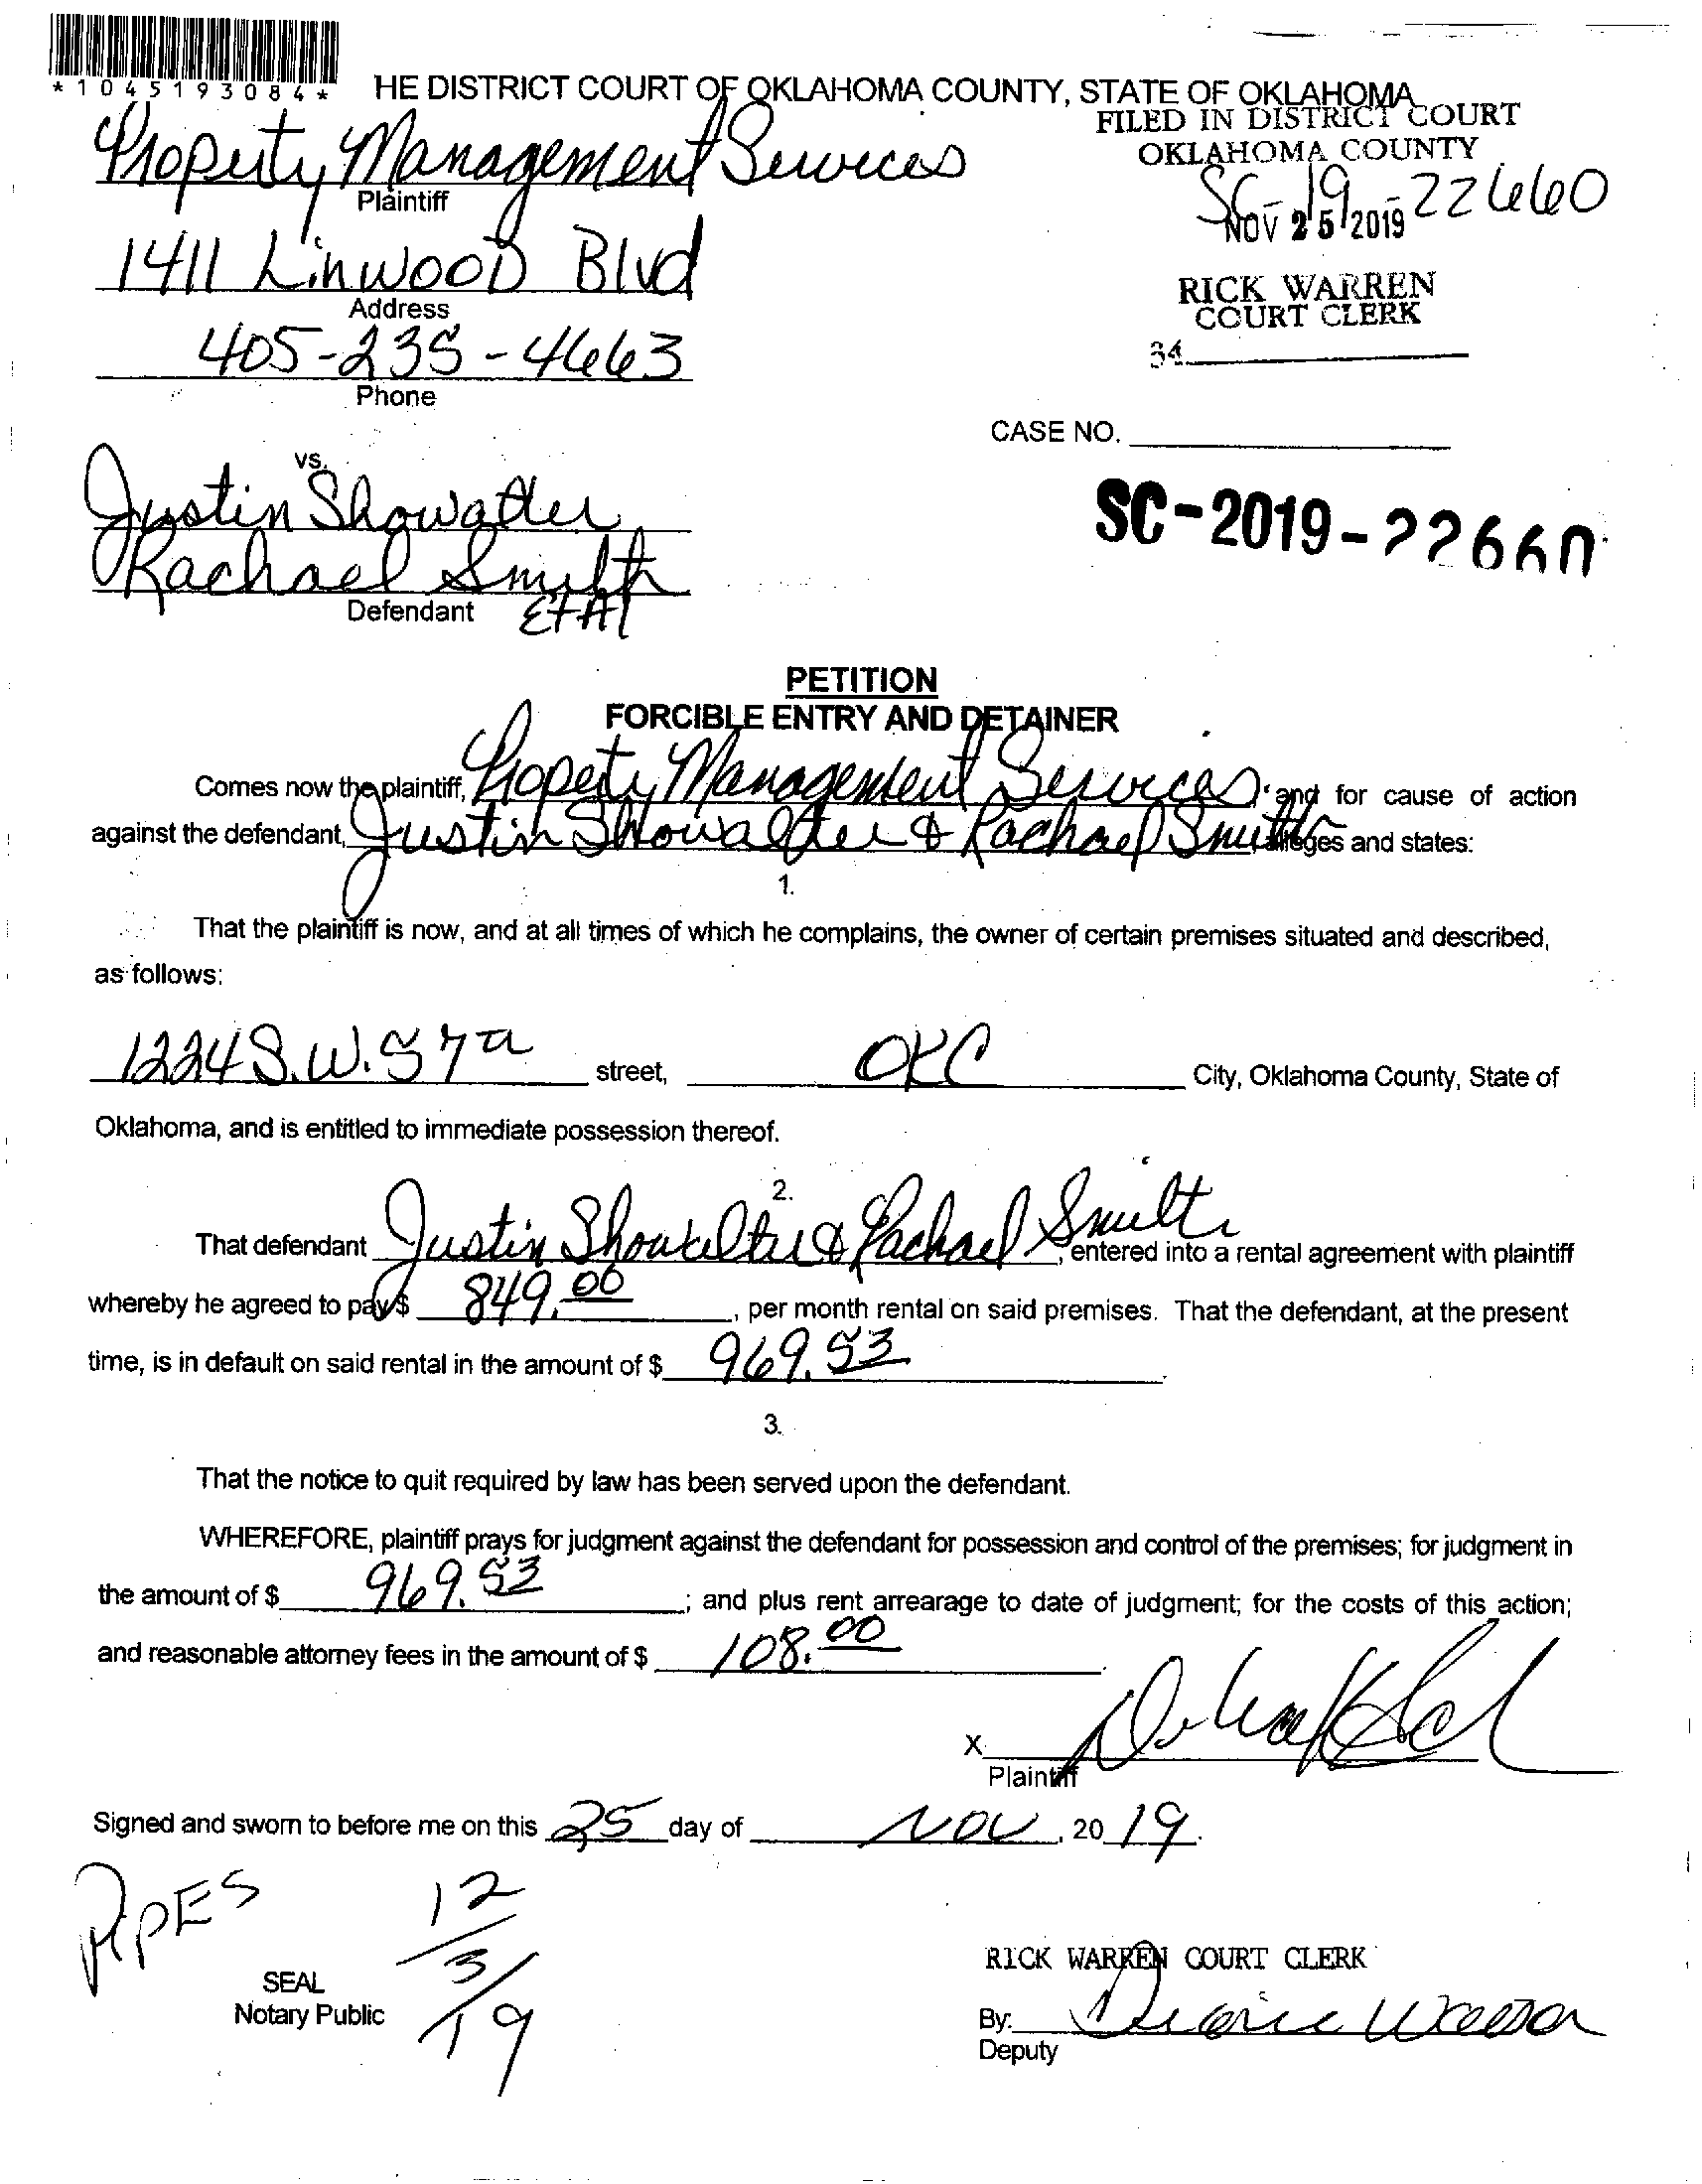 *1045193084*
HE DISTRICT COURT OF OKLAHOMA COUNTY, STATE OF OKLAHOMA
FILED IN DISTRICT COURT
OKLAHOMA COUNTY
Property Management Services
Plaintiff
SC-19-22660
NOV 25 2019
1411 Linwood Blvd
Address
RICK WARREN
COURT CLERK
34
405-235-4663
Phone
CASE NO.
vs.
Justin Showatler
Rachael Smith
Defendant
EtAl
SC-2019-22660
PETITION
FORCIBLE ENTRY AND DETAINER
Comes now the plaintiff, Property Management Services, and for cause of action
against the defendant, Justin Showalter & Rachael Smith alleges and states:
1.
That the plaintiff is now, and at all times of which he complains, the owner of certain premises situated and described,
as follows:
1224 S.W. 57th street, OKC City, Oklahoma County, State of
Oklahoma, and is entitled to immediate possession thereof.
2.
That defendant Justin Showalter & Rachael Smith, entered into a rental agreement with plaintiff
whereby he agreed to pay $ 849.00, per month rental on said premises. That the defendant, at the present
time, is in default on said rental in the amount of $ 969.53.
3.
That the notice to quit required by law has been served upon the defendant.
WHEREFORE, plaintiff prays for judgment against the defendant for possession and control of the premises; for judgment in
the amount of $ 969.53; and plus rent arrearage to date of judgment; for the costs of this action;
and reasonable attorney fees in the amount of $ 108.00
X
Plaintiff
Signed and sworn to before me on this 25 day of NOV, 20 19.
PIPES
12/3/19
SEAL
Notary Public
RICK WARREN COURT CLERK
By:
Deputy